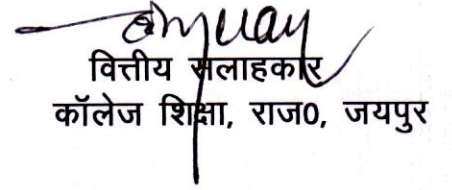 वित्तीय सलाहकार
कॉलेज शिक्षा, राज0, जयपुर